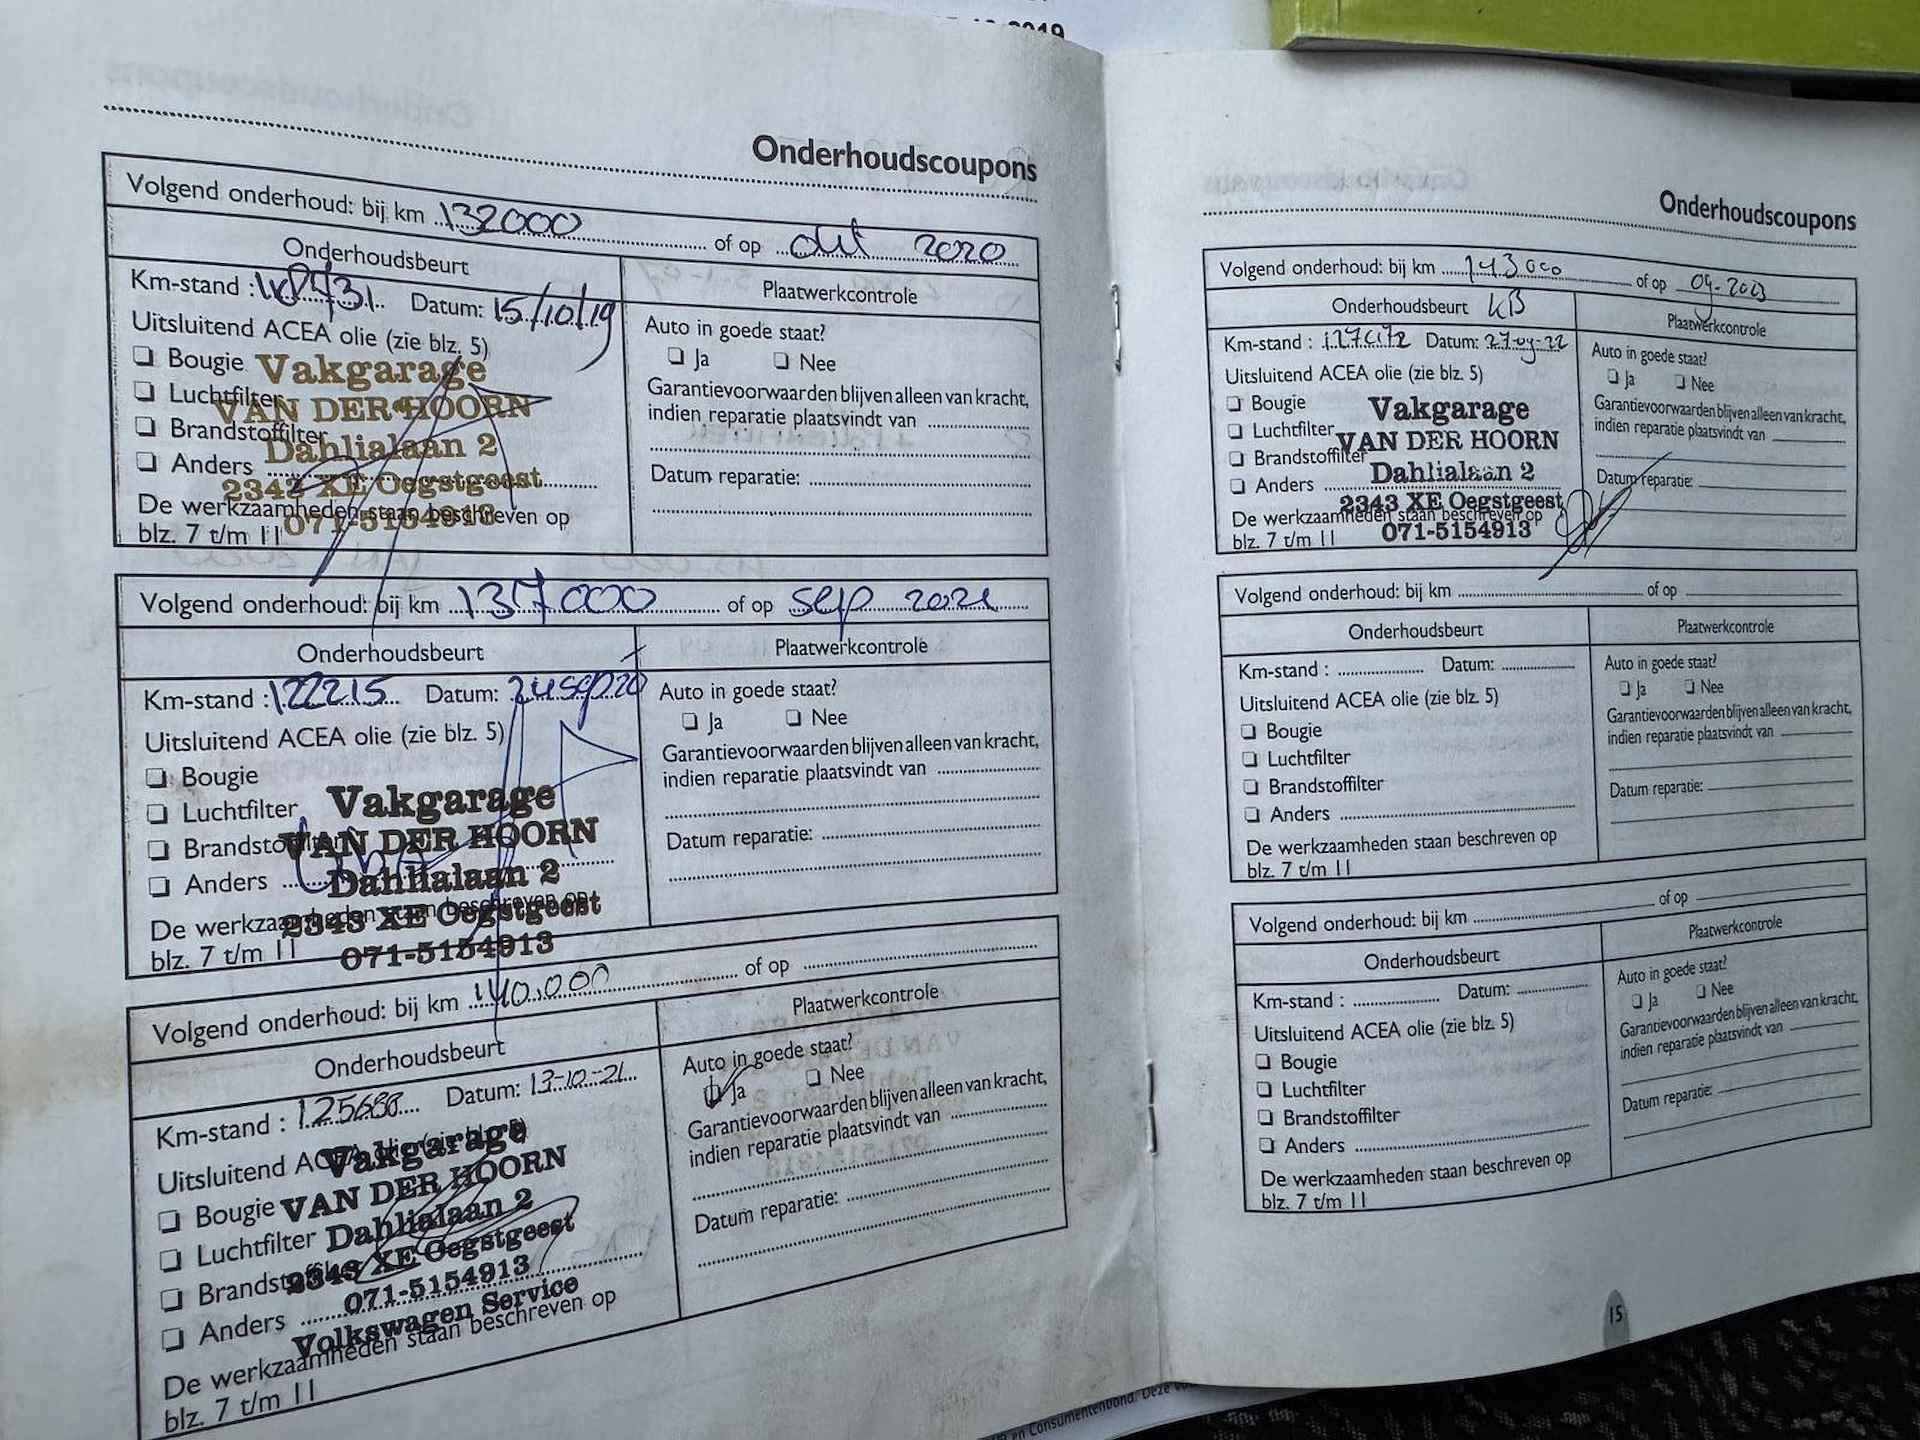 2019
Onderhoudscoupons
Volgend onderhoud: bij km 132000 of op okt 2020
Onderhoudsbeurt
Plaatwerkcontrole
Km-stand : Datum: 15/10/19
Uitsluitend ACEA olie (zie blz. 5)
Bougie
Luchtfilter
Brandstoffilter
Anders
De werkzaamheden staan beschreven op
blz. 7 t/m 11
Vakgarage
VAN DER HOORN
Dahlialaan 2
2343 XE Oegstgeest
071-5154913
Auto in goede staat?
Ja Nee
Garantievoorwaarden blijven alleen van kracht,
indien reparatie plaatsvindt van
Datum reparatie:
Volgend onderhoud: bij km 137000 of op sep 2021
Onderhoudsbeurt
Plaatwerkcontrole
Km-stand : 122215 Datum: 24 sep 20
Uitsluitend ACEA olie (zie blz. 5)
Bougie
Luchtfilter
Brandstoffilter
Anders
De werkzaamheden staan beschreven op
blz. 7 t/m 11
Vakgarage
VAN DER HOORN
Dahlialaan 2
2343 XE Oegstgeest
071-5154913
Auto in goede staat?
Ja Nee
Garantievoorwaarden blijven alleen van kracht,
indien reparatie plaatsvindt van
Datum reparatie:
Volgend onderhoud: bij km 140.000 of op
Onderhoudsbeurt
Plaatwerkcontrole
Km-stand : Datum: 13-10-21
Uitsluitend ACEA olie (zie blz. 5)
Bougie
Luchtfilter
Brandstoffilter
Anders
De werkzaamheden staan beschreven op
blz. 7 t/m 11
Vakgarage
VAN DER HOORN
Dahlialaan 2
2343 XE Oegstgeest
071-5154913
Volkswagen Service
Auto in goede staat?
Ja Nee
Garantievoorwaarden blijven alleen van kracht,
indien reparatie plaatsvindt van
Datum reparatie:
Onderhoudscoupons
Volgend onderhoud: bij km 143000 of op 09-2023
Onderhoudsbeurt KB
Plaatwerkcontrole
Km-stand : Datum: 27-09-22
Uitsluitend ACEA olie (zie blz. 5)
Bougie
Luchtfilter
Brandstoffilter
Anders
De werkzaamheden staan beschreven op
blz. 7 t/m 11
Vakgarage
VAN DER HOORN
Dahlialaan 2
2343 XE Oegstgeest
071-5154913
Auto in goede staat?
Ja Nee
Garantievoorwaarden blijven alleen van kracht,
indien reparatie plaatsvindt van
Datum reparatie:
Volgend onderhoud: bij km of op
Onderhoudsbeurt
Plaatwerkcontrole
Km-stand : Datum:
Uitsluitend ACEA olie (zie blz. 5)
Bougie
Luchtfilter
Brandstoffilter
Anders
De werkzaamheden staan beschreven op
blz. 7 t/m 11
Auto in goede staat?
Ja Nee
Garantievoorwaarden blijven alleen van kracht,
indien reparatie plaatsvindt van
Datum reparatie:
Volgend onderhoud: bij km of op
Onderhoudsbeurt
Plaatwerkcontrole
Km-stand : Datum:
Uitsluitend ACEA olie (zie blz. 5)
Bougie
Luchtfilter
Brandstoffilter
Anders
De werkzaamheden staan beschreven op
blz. 7 t/m 11
Auto in goede staat?
Ja Nee
Garantievoorwaarden blijven alleen van kracht,
indien reparatie plaatsvindt van
Datum reparatie:
15
en Consumentenbond. Deze